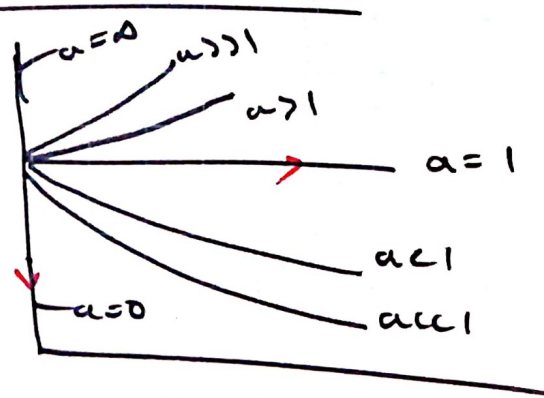 a=∞
a>>1
a>1
a=1
a<1
a<<1
a=0